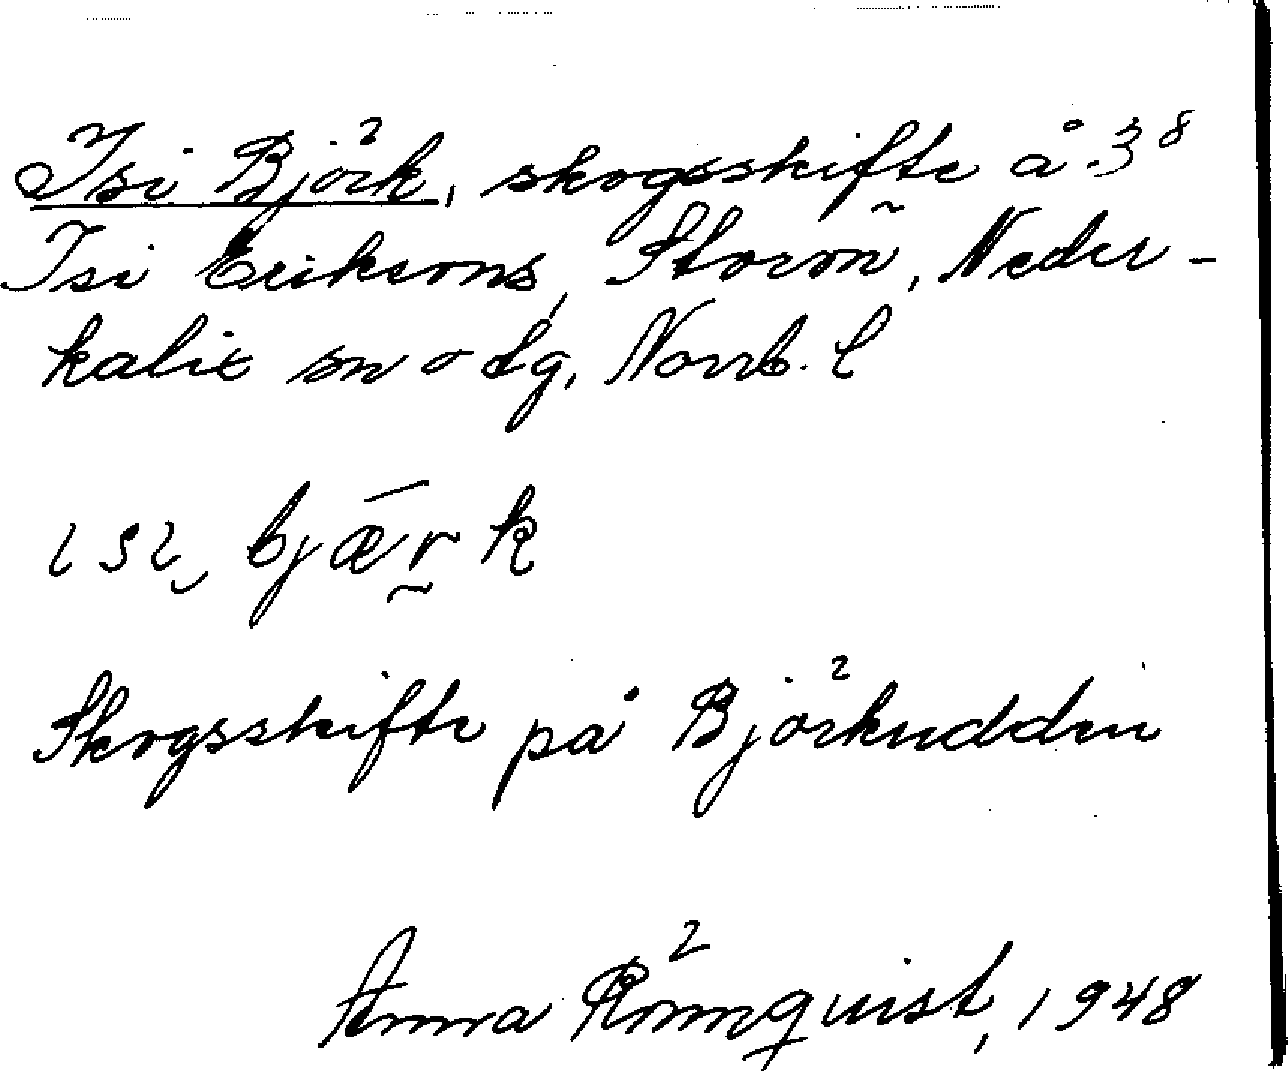 Isi Björk, skogsskifte å 3⁸
Isi Eriksons, Storön, Neder-
kalix sn o dg, Norrb. l
ısı bjǣr̰k
Skogsskifte på Björkudden
Anna Römquist, 1948